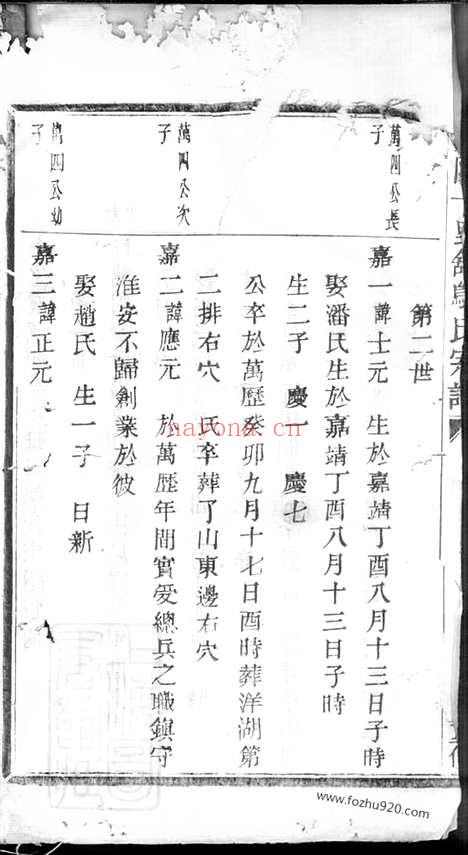 第二世
萬四公長
子
嘉一諱士元　生於嘉靖丁酉八月十三日子時
娶潘氏生於嘉靖丁酉八月十三日子時
生二子　慶一　慶七
公卒於萬歷癸卯九月十七日酉時葬洋湖第
二排右穴　氏卒葬了山東邊右穴
萬四公次
子
嘉二諱應元　於萬歷年間實受總兵之職鎮守
淮安不歸創業於彼
娶趙氏　生一子　日新
萬四公幼
子
嘉三諱正元
氏宗譜
nayona.cn
www.fozhu920.com